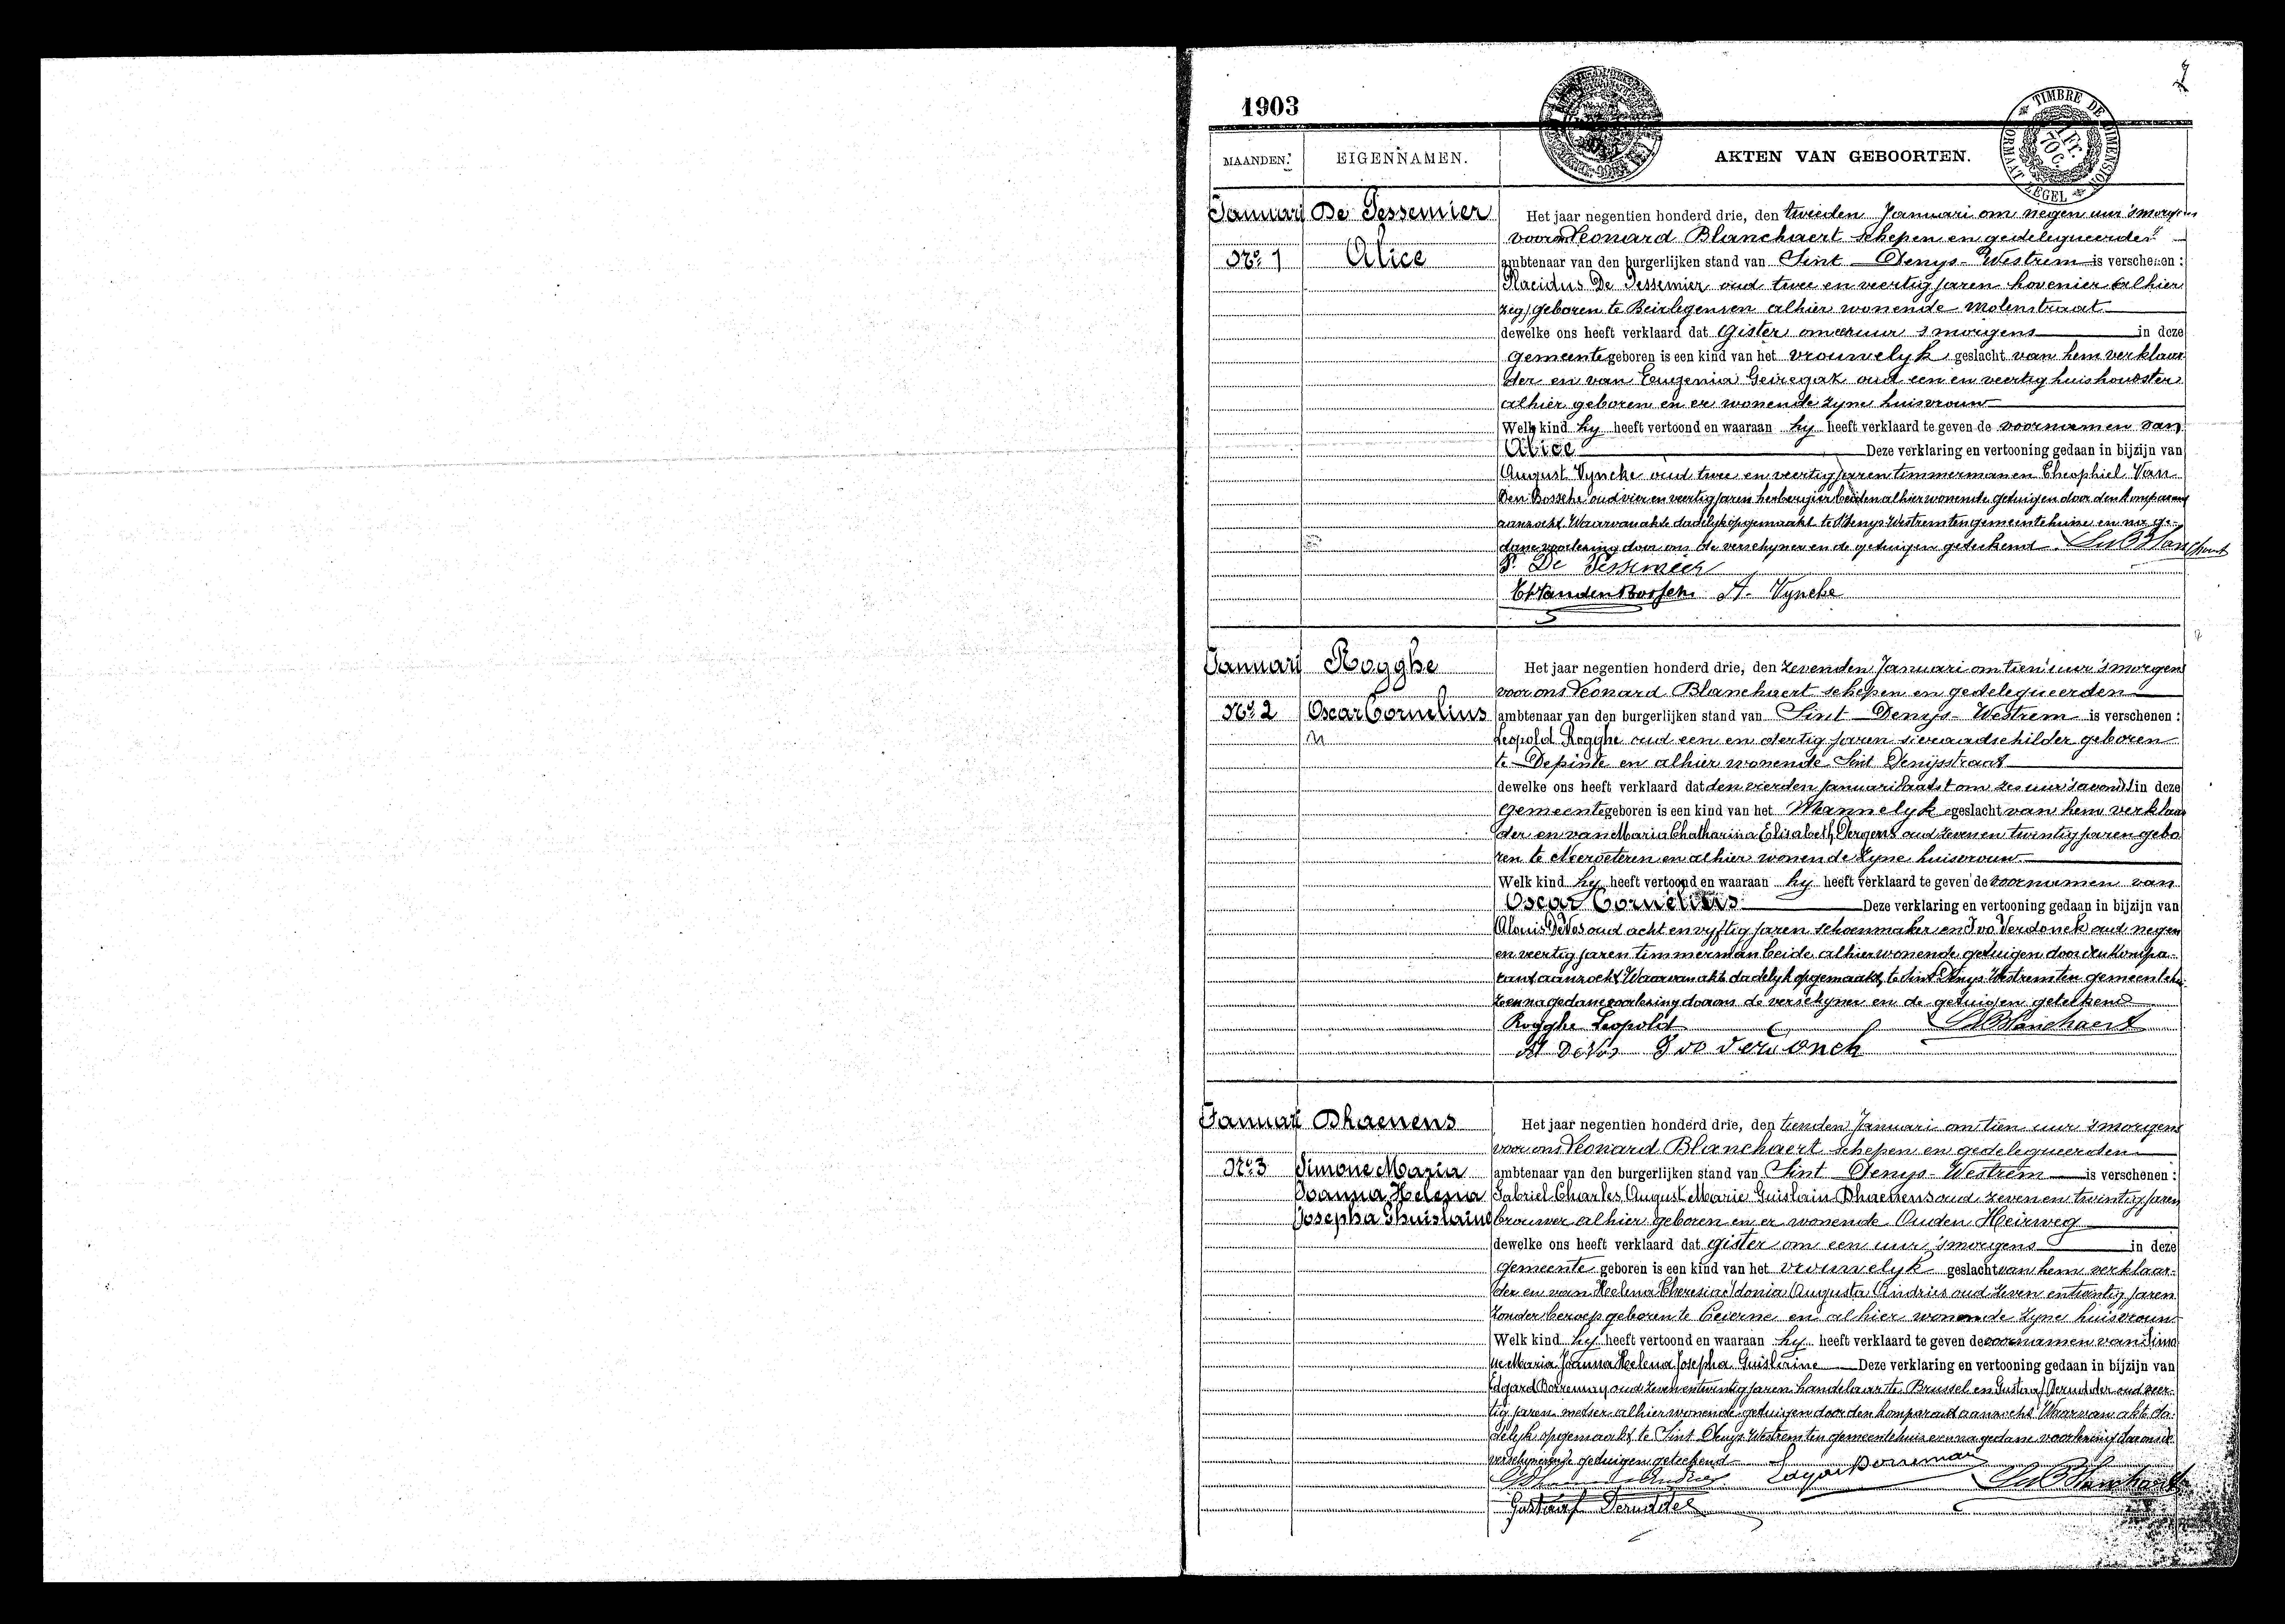 2
1903
TIMBRE DE DIMENSION
FORMAAT ZEGEL
1 Fr. 70 C.
MAANDEN. EIGENNAMEN. AKTEN VAN GEBOORTEN.
Januari De Pessemier Het jaar negentien honderd drie, den tweeden Januari om negen uur 'smorgens
voor ons Leonard Blanchaert schepen en gedelegueerden
No 1 Alice ambtenaar van den burgerlijken stand van Sint Denys-Westrem is verschenen :
Placidus De Pessemier oud twee en veertig jaren hovenier alhier
geboren te alhier wonende Molenstraat
dewelke ons heeft verklaard dat Gister om uur 'smorgens in deze
Gemeente geboren is een kind van het vrouwelyk geslacht van hem verklaar
der en van Eugenia oud een en veertig huishoudster
alhier geboren en er wonende zyne huisvrouw
Welk kind hy heeft vertoond en waaraan hy heeft verklaard te geven de voornamen van
Alice Deze verklaring en vertooning gedaan in bijzijn van
August Vyncke oud twee en veertig jaren timmerman en Theophiel Van
Den Bossche oud vier en veertig jaren herbergier beiden alhier wonende getuigen door den komparant
aanzocht Waarvan akte dadelyk opgemaakt te St Denys Westrem ten gemeentehuize en na ge-
dane voorlezing door ons de verschyner en de getuigen geteekend Le Blanchaert
P. De Pessemier
Th Vanden Bossche A. Vyncke
Januari Rogghe Het jaar negentien honderd drie, den zevenden Januari om tien uur 'smorgens
voor ons Leonard Blanchaert schepen en gedelegueerden
No 2 Oscar Cornelius ambtenaar van den burgerlijken stand van Sint Denys-Westrem is verschenen :
Leopold Rogghe oud een en dertig jaren sieraadschilder geboren
te Depinte en alhier wonende Sint Denijsstraat
dewelke ons heeft verklaard dat den vierden januari laatst om zes uur 'savonds in deze
Gemeente geboren is een kind van het Mannelyk geslacht van hem verklaar
der en van Maria Chatharina Elisabeth oud zeven en twintig jaren gebo
ren te Neeroeteren en alhier wonende zyne huisvrouw
Welk kind hy heeft vertoond en waaraan hy heeft verklaard te geven de voornamen van
Oscar Cornelius Deze verklaring en vertooning gedaan in bijzijn van
Alouis De Vos oud acht en vyftig jaren schoenmaker en Ivo Verdonck oud negen
en veertig jaren timmerman beide alhier wonende getuigen door den kompa-
rant aanzocht Waarvan akte dadelyk opgemaakt te Sint Denys Westrem ten gemeentehui-
ze en na gedane voorlezing door ons de verschyner en de getuigen geteekend
Rogghe Leopold Le Blanchaert
Al DeVos Ivo Verdonck
Januari Dhaenens Het jaar negentien honderd drie, den tienden Januari om tien uur 'smorgens
voor ons Leonard Blanchaert schepen en gedelegueerden
No 3 Simone Maria ambtenaar van den burgerlijken stand van Sint Denys-Westrem is verschenen :
Joanna Helena Gabriel Charles August Marie Guislain Dhaenens oud zeven en twintig jaren
Josepha Ghuislaine brouwer alhier geboren en er wonende Ouden Heirweg
dewelke ons heeft verklaard dat gister om een uur 'smorgens in deze
Gemeente geboren is een kind van het vrouwelyk geslacht van hem verklaar-
der en van Helena Theresia Idonia Augusta Andries oud zeven en twintig jaren
zonder beroep geboren te en alhier wonende zyne huisvrouw
Welk kind hy heeft vertoond en waaraan hy heeft verklaard te geven de voornamen van Simo
ne Maria Joanna Helena Josepha Guislaine Deze verklaring en vertooning gedaan in bijzijn van
Edgard Borreman oud zeven en twintig jaren handelaar te Brussel en Gustaaf Derudder oud veer
tig jaren metser alhier wonende getuigen door den komparant aanzocht Waarvan akte da-
delyk opgemaakt te Sint Denys Westrem ten gemeentehuize en na gedane voorlezing door ons de
verschyner en de getuigen geteekend
Edgar Borreman Le Blanchaert
Gustaaf Derudder